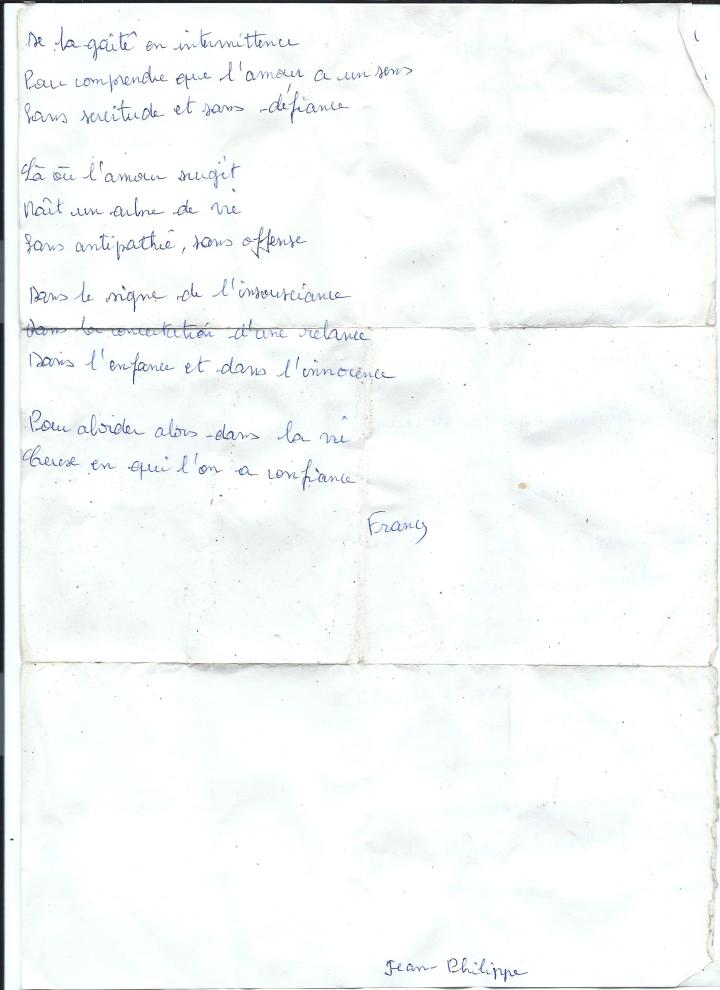 De la gaîté en intermittence
Pour comprendre que l'amour a un sens
Sans servitude et sans défiance
Là où l'amour surgit
Naît un arbre de vie
Sans antipathie, sans offense
Dans le signe de l'insousciance
Dans la concertation d'une relance
Dans l'enfance et dans l'innocence
Pour aborder alors dans la vie
en qui l'on a confiance
Francy
Jean-Philippe